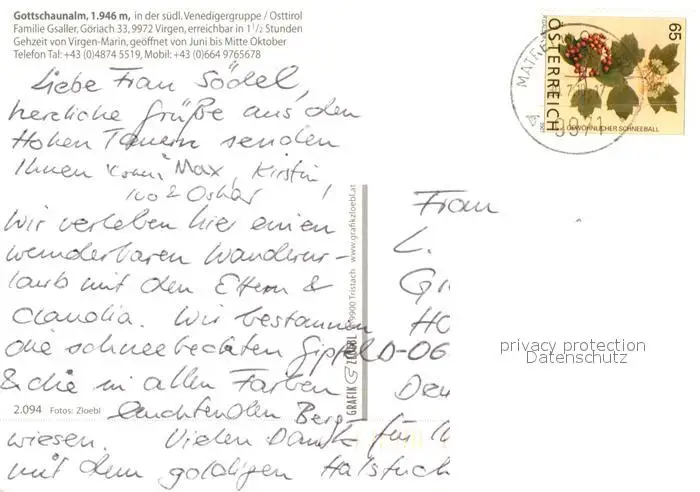 Gottschaunalm, 1.946 m, in der südl. Venedigergruppe / Osttirol
Familie Gsaller, Göriach 33, 9972 Virgen, erreichbar in 1 1/2 Stunden
Gehzeit von Virgen-Marin, geöffnet von Juni bis Mitte Oktober
Telefon Tal: +43 (0)4874 5519, Mobil: +43 (0)664 9765678
Liebe Frau Södel,
herzliche Grüße aus den
Hohen Tauern senden
Ihnen Max, Kirstin,
und Oskar
Wir verleben hier einen
wunderbaren Wanderur-
laub mit den Eltern &
Claudia. Wir bestaunen
die schneebedeckten Gipfel
& die in allen Farben
leuchtenden Berg-
wiesen. Vielen Dank für
mit dem goldigen Halstuch
2.094 Fotos: Zloebl
GRAFIK ZLOEBL 9900 Tristach www.grafikzloebl.at
Frau
L.
D-06
65
ÖSTERREICH
GEWÖHNLICHER SCHNEEBALL
MATREI
9971
privacy protection
Datenschutz